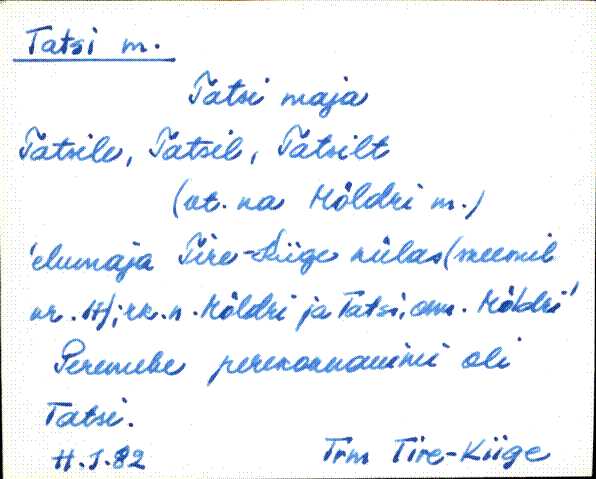 Tatsi m.
Tàtsi maja
Tàtsile, Tàtsil, Tàtsilt
(vt. ka Möldri m.)
'elumaja Tire-Kiige külas (skeemil
nr. 17); rk. n. Möldri ja Tatsi, om. Möldri'
Peremehe perekonnanimi oli
Tatsi.
H.J.82 Trm Tire-Kiige